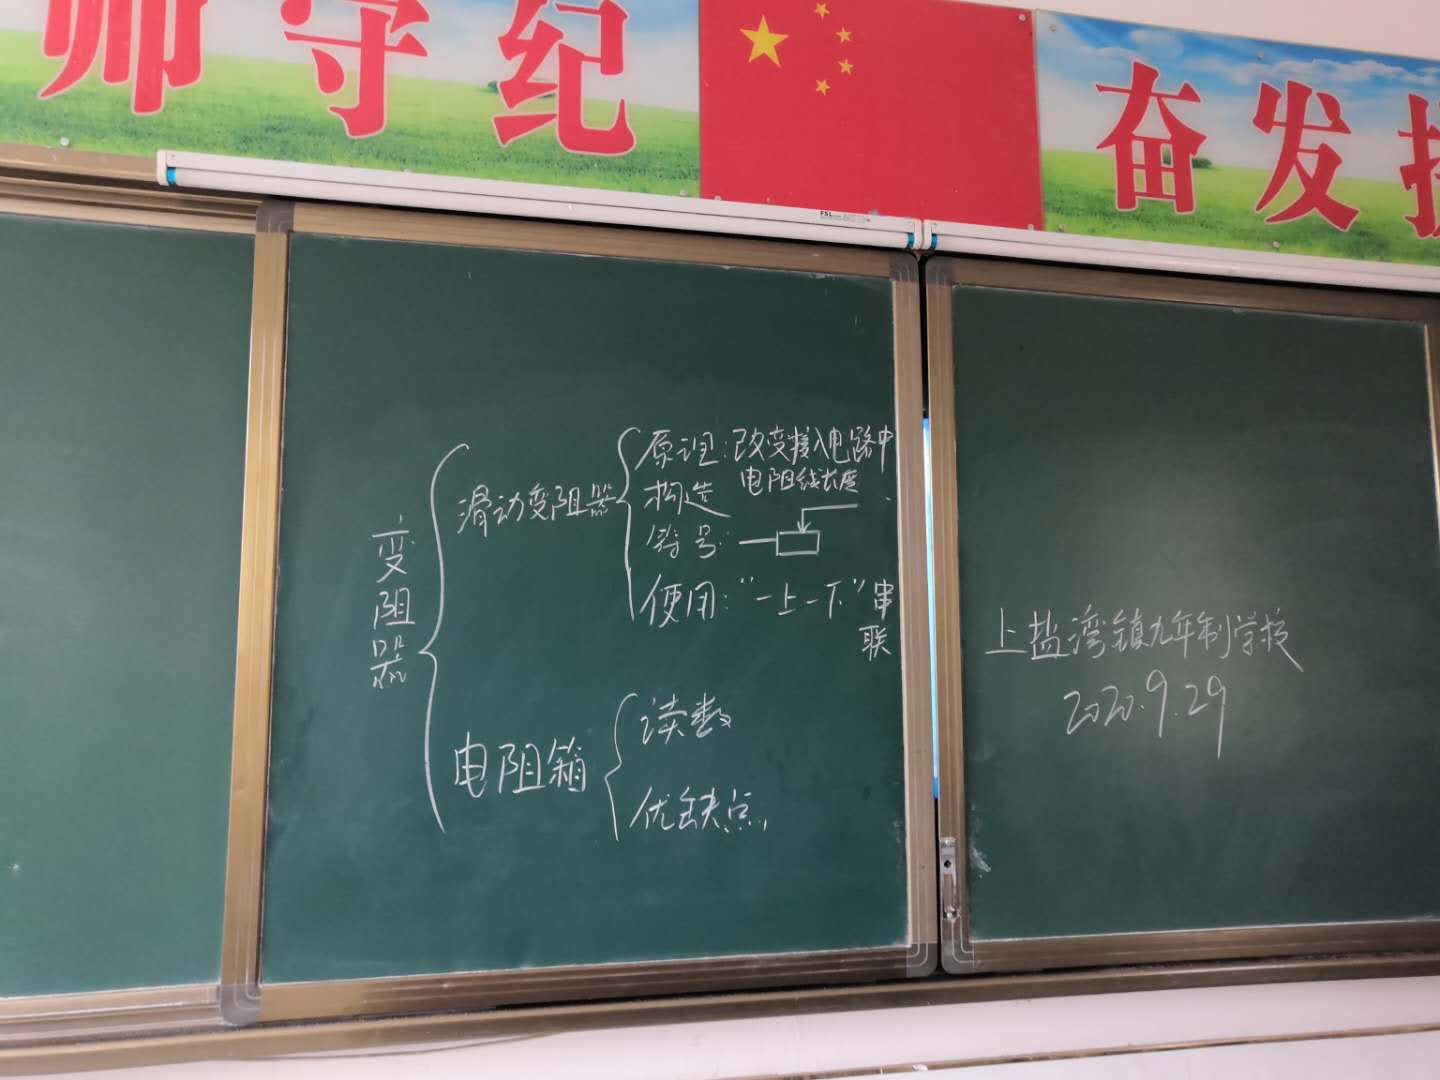 师守纪
奋发
FSL
变阻器
滑动变阻器
原理：改变接入电路中
电阻线长度
构造
符号：
使用：“一上一下”串
联
电阻箱
读数
优缺点
上盐湾镇九年制学校
2020.9.29